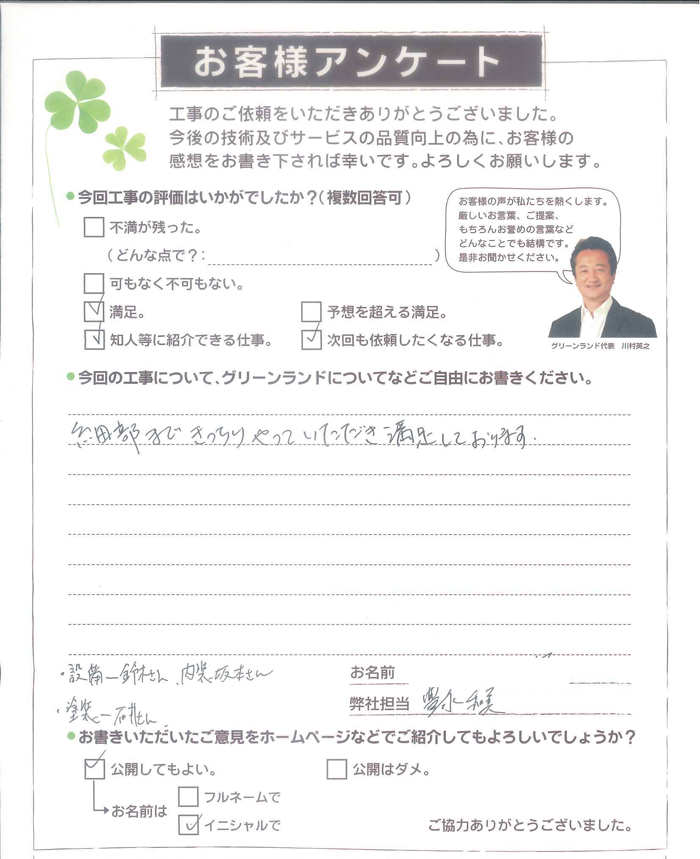 お客様アンケート
工事のご依頼をいただきありがとうございました。
今後の技術及びサービスの品質向上の為に、お客様の
感想をお書き下されば幸いです。よろしくお願いします。
●今回工事の評価はいかがでしたか？（複数回答可）
お客様の声が私たちを熱くします。
厳しいお言葉、ご提案、
もちろんお誉めの言葉など
どんなことでも結構です。
是非お聞かせください。
不満が残った。
（どんな点で？： ）
可もなく不可もない。
満足。 予想を超える満足。
知人等に紹介できる仕事。 次回も依頼したくなる仕事。
グリーンランド代表 川村英之
●今回の工事について、グリーンランドについてなどご自由にお書きください。
細部まできっちりやっていただき満足しております.
・設備ー鈴木さん、内装坂本さん
お名前
・塗装ー石井さん
弊社担当
●お書きいただいたご意見をホームページなどでご紹介してもよろしいでしょうか？
公開してもよい。 公開はダメ。
お名前は
フルネームで
イニシャルで
ご協力ありがとうございました。